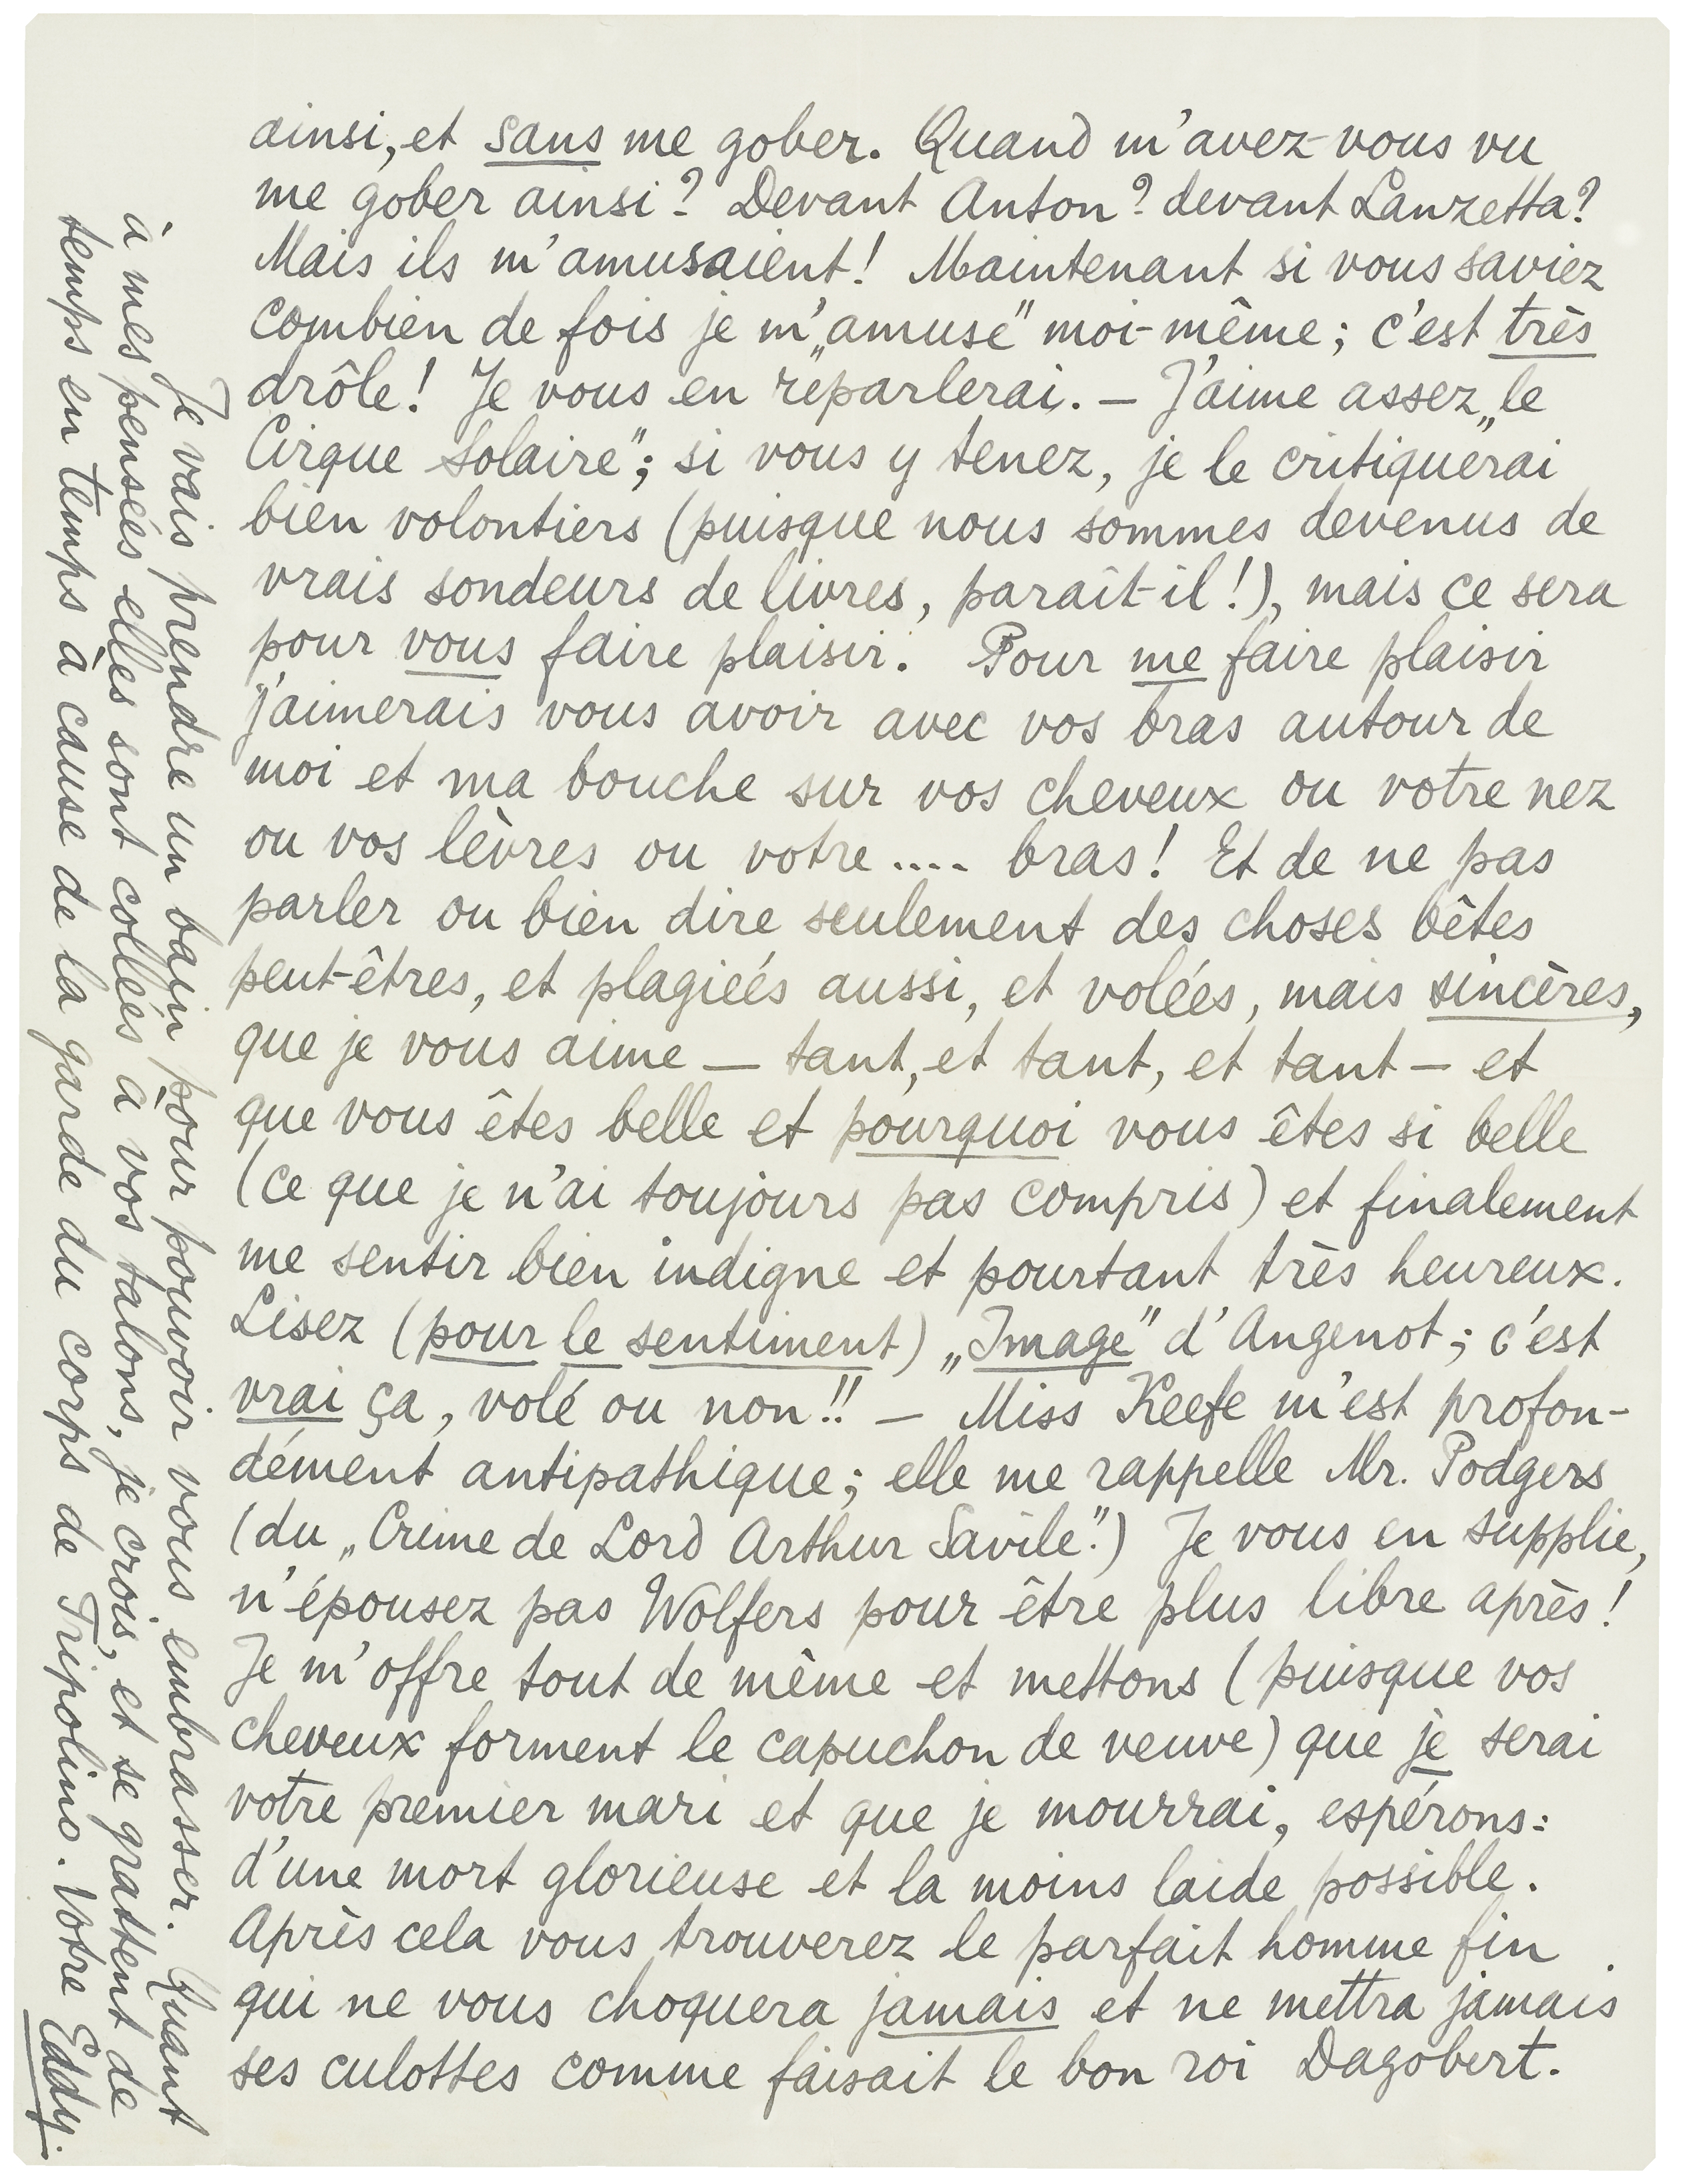 ainsi, et sans me gober. Quand m'avez-vous vu
me gober ainsi? Devant Anton? devant Lanzetta?
Mais ils m'amusaient! Maintenant si vous saviez
combien de fois je m'„amuse” moi-même; c'est très
drôle! Je vous en reparlerai. — J'aime assez „le
Cirque Solaire”; si vous y tenez, je le critiquerai
bien volontiers (puisque nous sommes devenus de
vrais sondeurs de livres, paraît-il!), mais ce sera
pour vous faire plaisir. Pour me faire plaisir
j'aimerais vous avoir avec vos bras autour de
moi et ma bouche sur vos cheveux ou votre nez
ou vos lèvres ou votre .... bras! Et de ne pas
parler ou bien dire seulement des choses bêtes
peut-êtres, et plagiéés aussi, et voléés, mais sincères,
que je vous aime — tant, et tant, et tant — et
que vous êtes belle et pourquoi vous êtes si belle
(ce que je n'ai toujours pas compris) et finalement
me sentir bien indigne et pourtant très heureux.
Lisez (pour le sentiment) „Image” d'Angenot; c'est
vrai ça, volé ou non!! — Miss Keefe m'est profon-
dément antipathique; elle me rappelle Mr. Podgers
(du „Crime de Lord Arthur Savile”.) Je vous en supplie,
n'épousez pas Wolfers pour être plus libre après!
Je m'offre tout de même et mettons (puisque vos
cheveux forment le capuchon de veuve) que je serai
votre premier mari et que je mourrai, espérons:
d'une mort glorieuse et la moins laide possible.
Après cela vous trouverez le parfait homme fin
qui ne vous choquera jamais et ne mettra jamais
ses culottes comme faisait le bon roi Dagobert.
Je vais prendre un bain pour pouvoir vous embrasser. Quant
à mes penséés elles sont colléés à vos talons, je crois, et se grattent de
temps en temps à cause de la garde du corps de Tripolino. Votre Eddy.